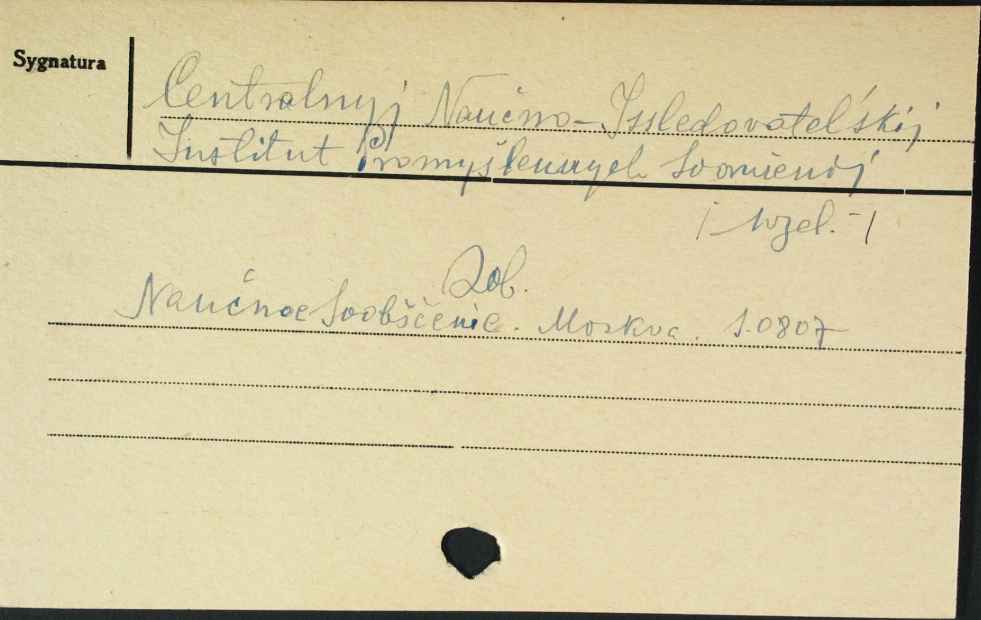 Sygnatura
Centralnyj Naučno-Issledovatel'skij
Institut Promyšlennych Sooruženij
/-wzel.-/
Zob.
Naučnoe Soobščenie. Moskva. S.0807